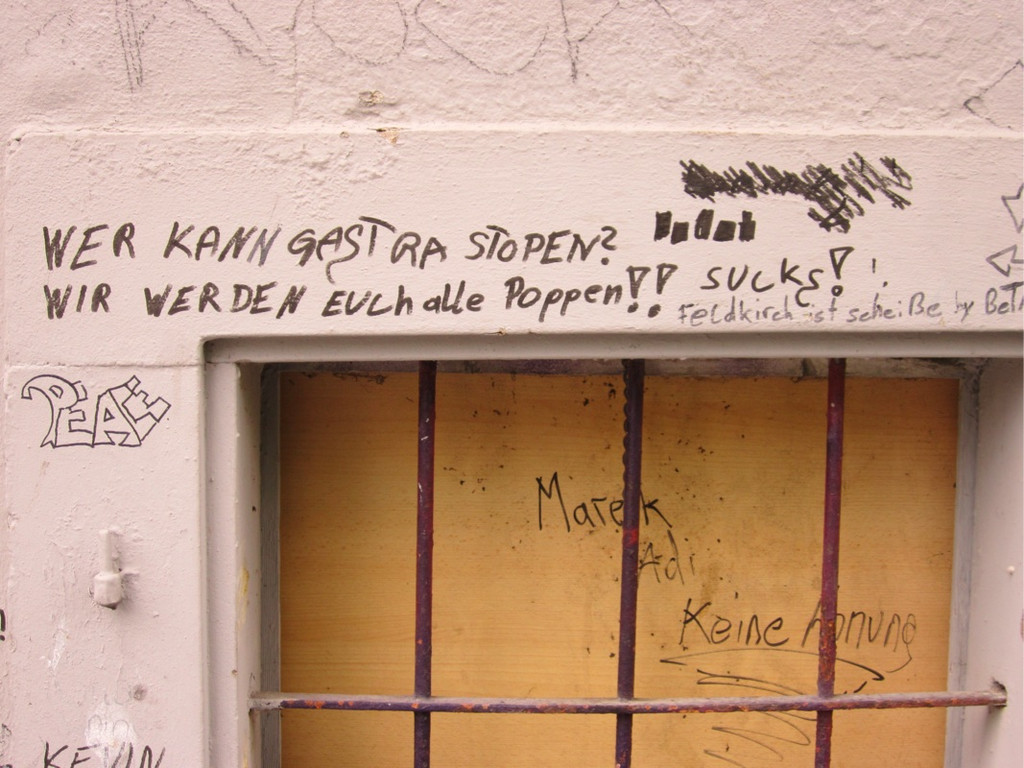 WER KANN GASTRA STOPEN?
WIR WERDEN EUCH alle Poppen!!
SUCKS! !
Feldkirch ist scheiße by
PEACE
Marek
Adi
Keine
KEVIN